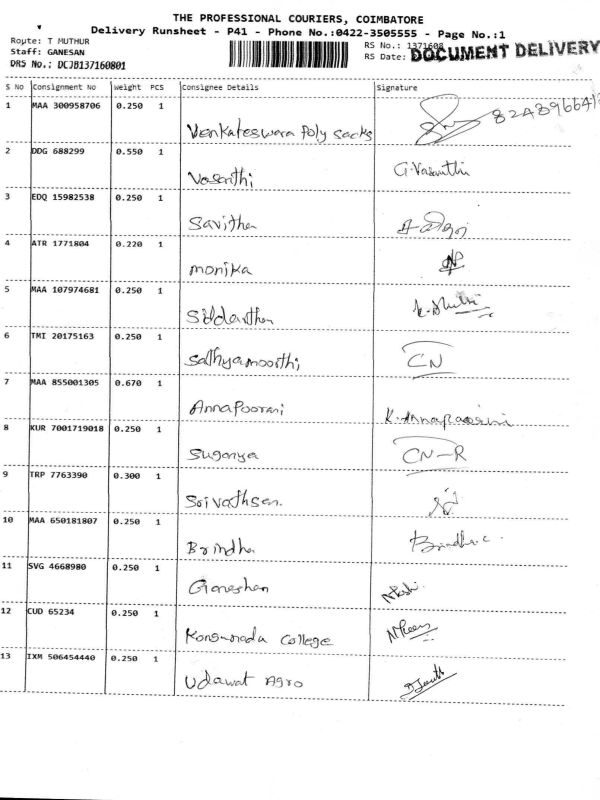 THE PROFESSIONAL COURIERS, COIMBATORE
Delivery Runsheet - P41 - Phone No.:0422-3505555 - Page No.:1
Route: T MUTHUR
Staff: GANESAN
DRS No.: DCJB137160801
RS No.: 1371608
RS Date:
DOCUMENT DELIVERY
S No Consignment No Weight PCS Consignee Details Signature
1 MAA 300958706 0.250 1 Venkateswara Poly Sacks
2 DDG 688299 0.550 1 Vasanthi G. Vasanthi
3 EDQ 15982538 0.250 1 Savitha
4 ATR 1771804 0.220 1 monika
5 MAA 107974681 0.250 1 Siddarthan
6 TMI 20175163 0.250 1 Sathyamoorthi CN
7 MAA 855001305 0.670 1 AnnaPoorani K. Annapoorani
8 KUR 7001719018 0.250 1 Suganya CN-R
9 TRP 7763390 0.300 1 Srivathsan
10 MAA 650181807 0.250 1 Brindha Brindha.c
11 SVG 4668980 0.250 1 Ganeshan
12 CUD 65234 0.250 1 Kongunadu College
13 IXM 506454440 0.250 1 Udawat Agro